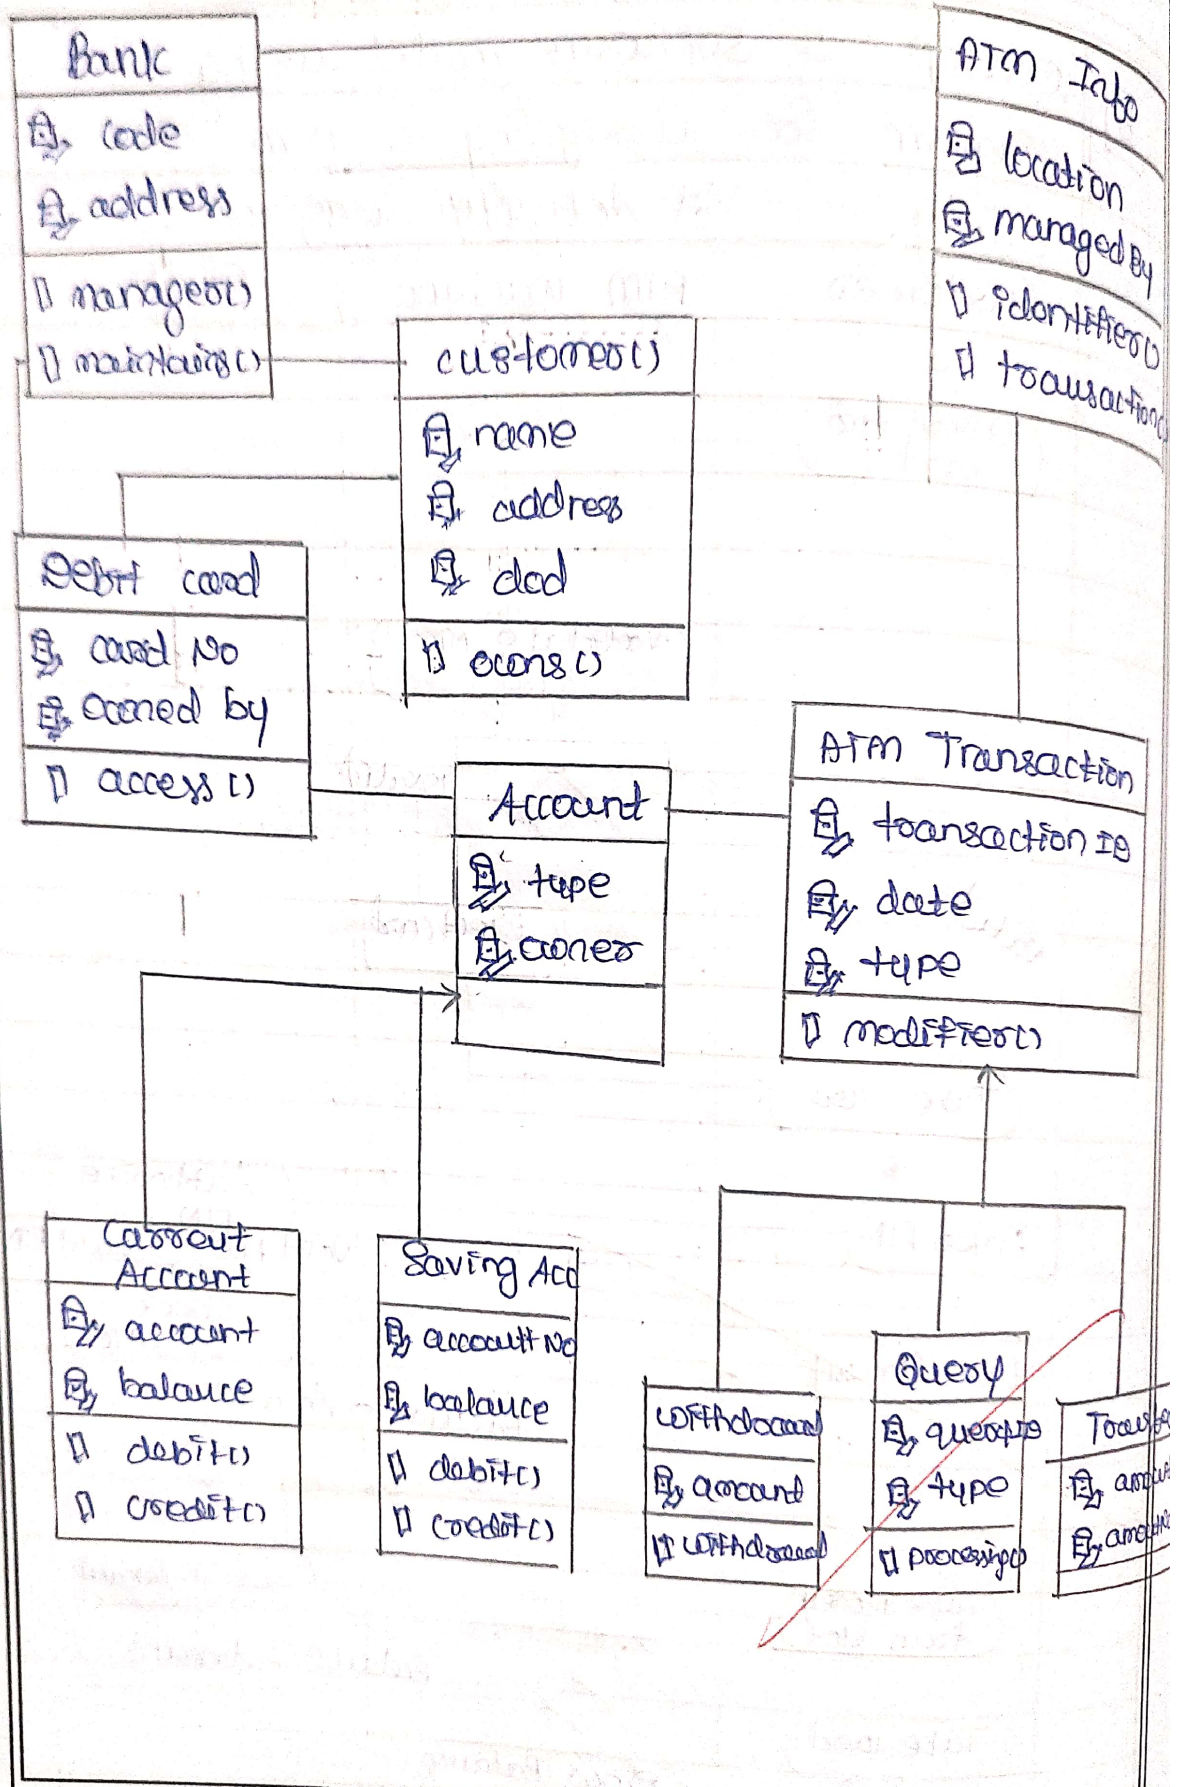 Bank
code
address
manager()
maintains()
ATM Info
location
managed By
identifier()
transaction
customer()
name
address
dod
owns()
Debit card
card No
owned by
access()
Account
type
owner
ATM Transaction
transaction ID
date
type
modifier()
Current
Account
account
balance
debit()
credit()
Saving Acc
account No
balance
debit()
credit()
withdrawal
amount
withdrawal
Query
queryID
type
processing()